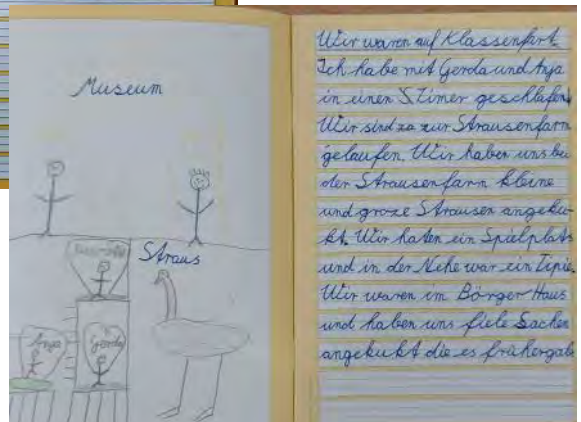 Museum
Straus
Anja
Gerda
Wir waren auf Klassenfart.
Ich habe mit Gerda und Anja
in einen Zimer geschlafen,
Wir sind zo zur Strausenfarm
gelaufen. Wir haben uns bei
der Strausenfarm kleine
und groze Strausen angeku-
kt. Wir haten ein Spielplats
und in der Nehe war ein Tipie.
Wir waren im Börger Haus
und haben uns fiele Sachen
angekukt die es frühergab